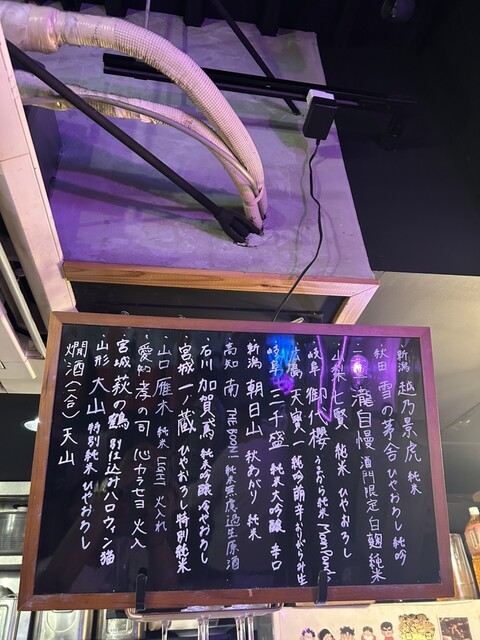 ・新潟 越乃景虎 純米
・秋田 雪の茅舎 ひやおろし 純吟
瀧自慢 酒門限定 白麹純米
・山梨 七賢 純米 ひやおろし
・岐阜 御代櫻 うまから純米
・広島 天寳一 純吟
・岐阜 三千盛 純米大吟醸 辛口
・新潟 朝日山 秋あがり 純米
・高知 南 THE BOON! 純米無濾過生原酒
・石川 加賀鳶 純米吟醸 冷やおろし
・宮城 一ノ蔵 ひやおろし 特別純米
・山口 雁木 純米 火入れ
・愛知 孝の司 心カラセヨ 火入
・宮城 萩の鶴 別仕込みハロウィン猫
・山形 大山 特別純米 ひやおろし
燗酒(一合) 天山